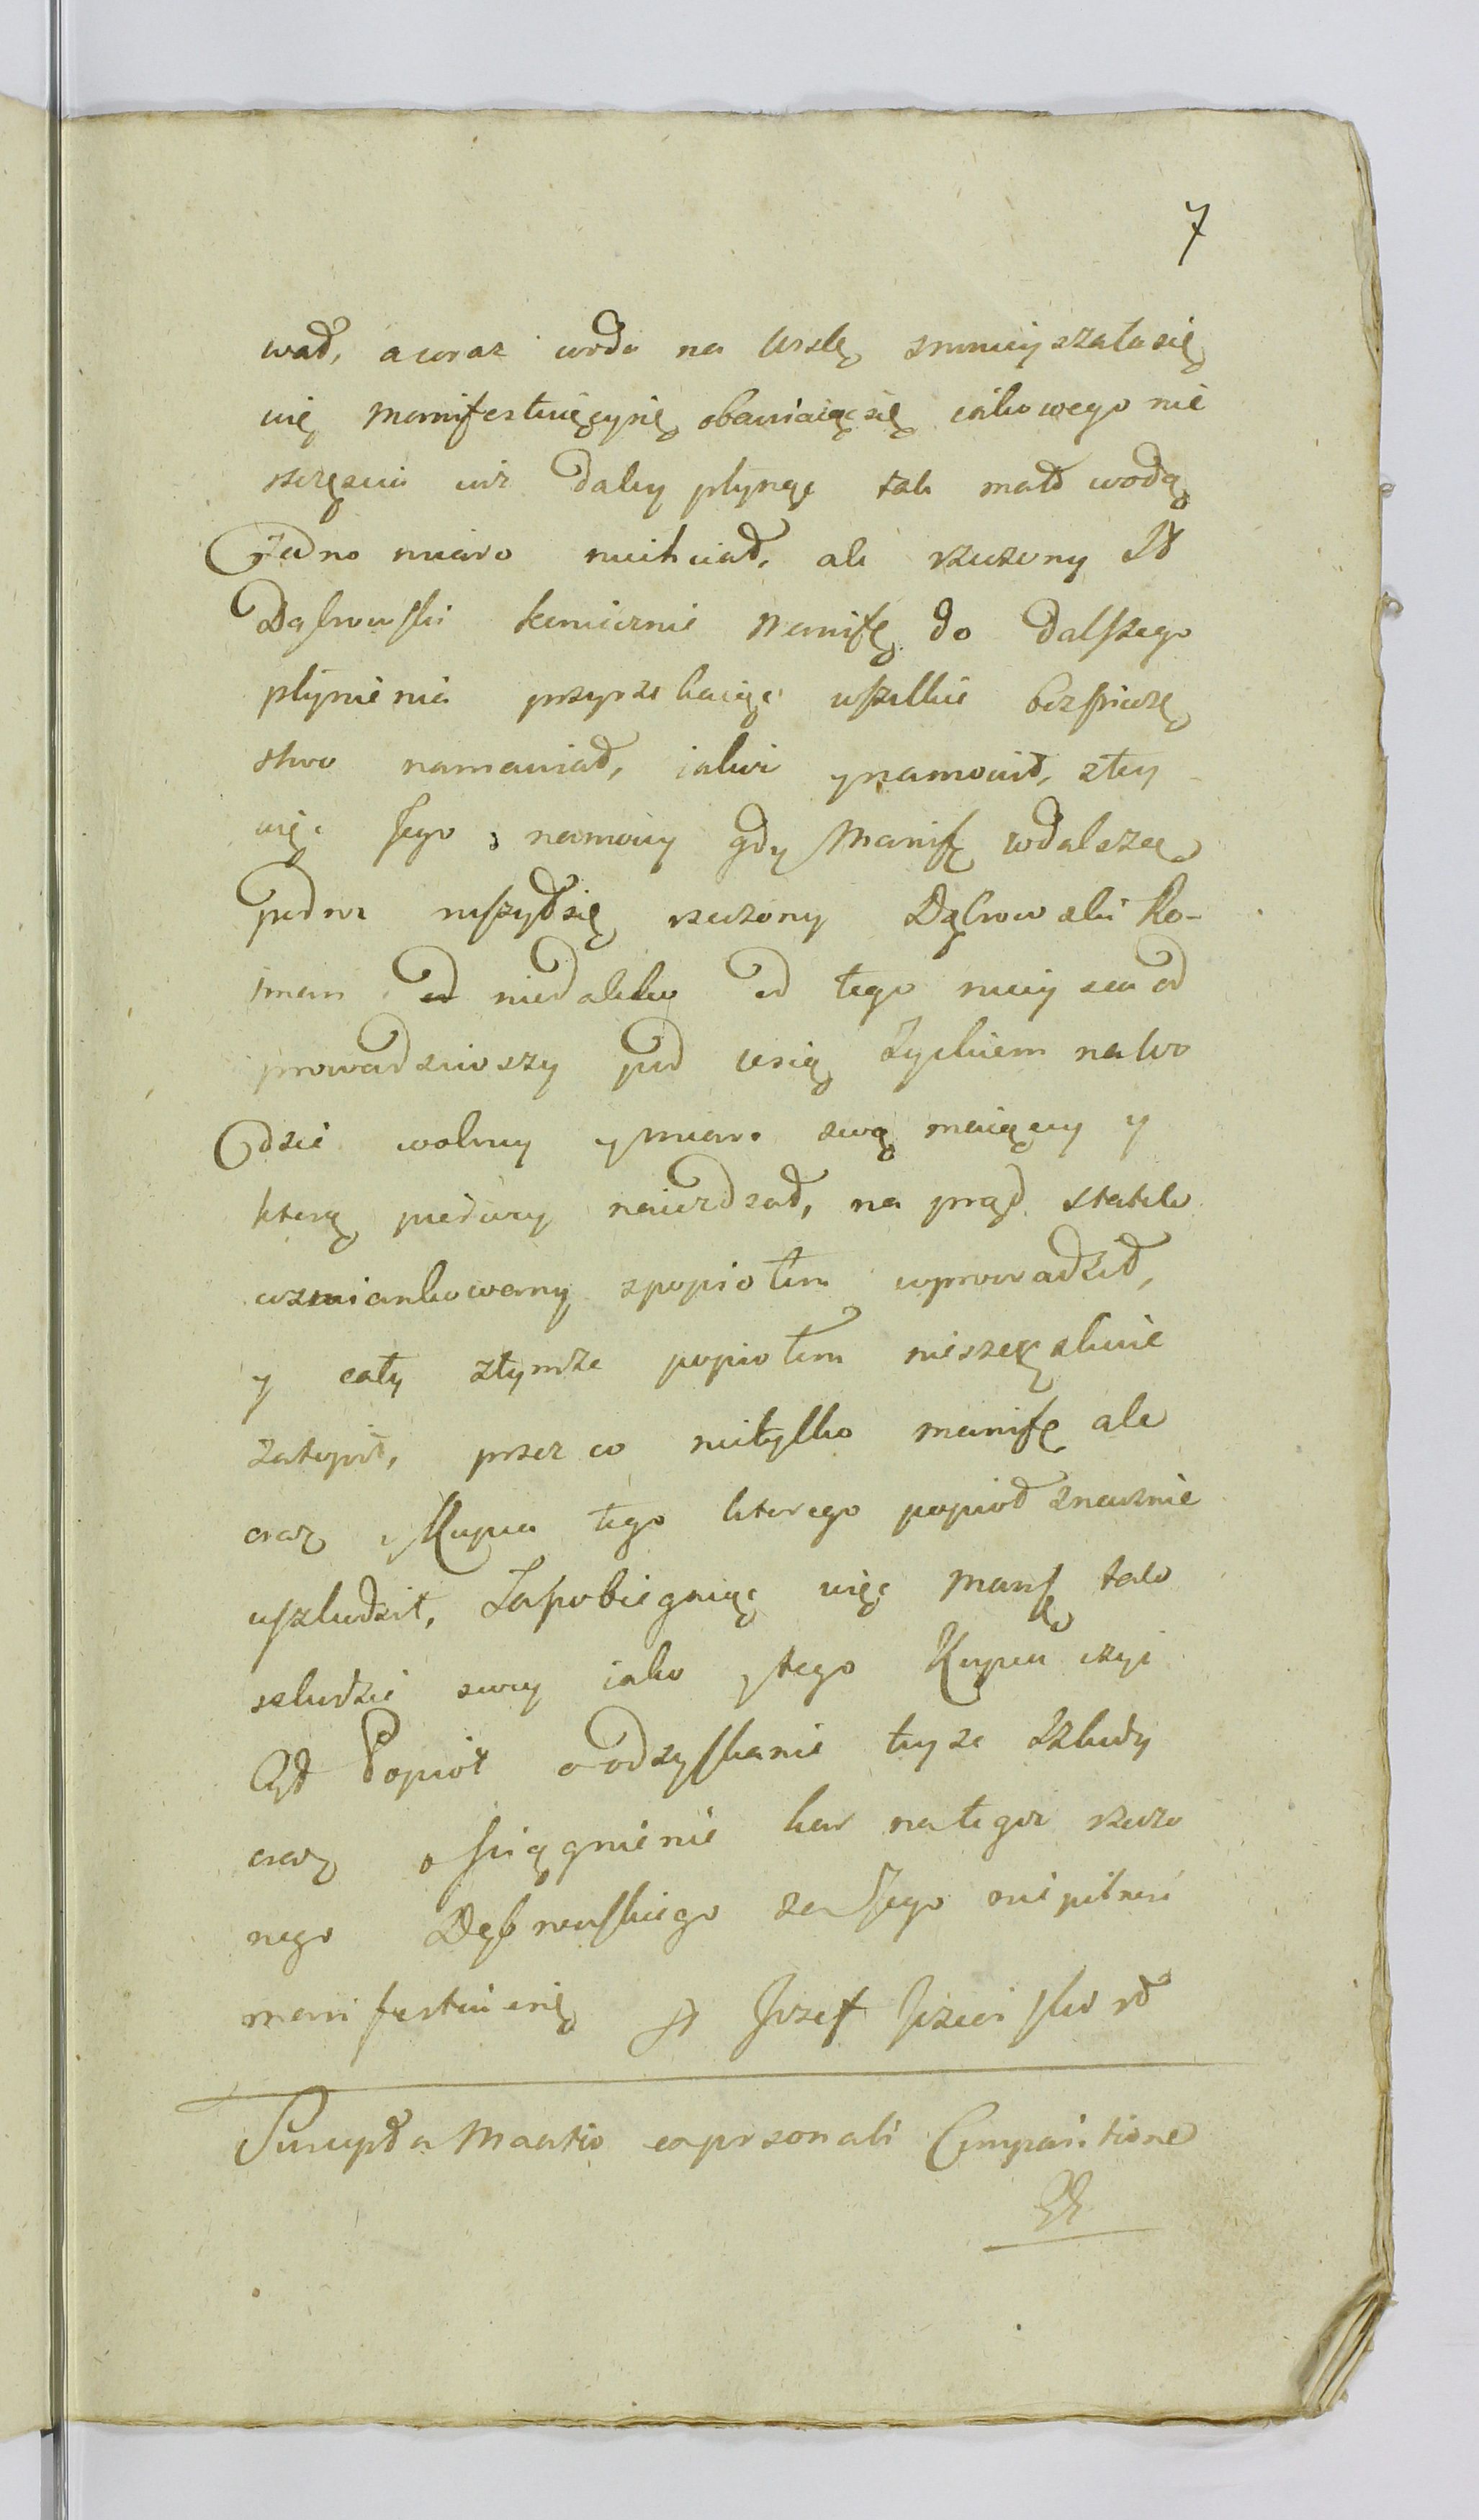 7
wał, a woraz woda na Wislę zmnieyszała się
więc Manifestuięcy się obawiaiąc się iakowego nie
szczęscia iuz daley płynąc tak małą wodą
Jedno miaro niechciał, ale rzeczony JP
Dąbrowski koniecznie Manifę do dalszego
płynienia przyrzekaiąc wszelkie bezpiecze
stwo namawiał, iakoż y namowił, z tey
więc Jego namowy gdy Manifę w dalszą
podroz ruszył się rzeczony Dąbrowski Ro-
tman niedaleko od tego mieysca od
prowadziwszy pod wsią Zyckiem na wo
dzie wolney y miaro swą maiącey y
ktorą pierwey naiezdzał, na prąd statek
wzmiankowany z popiołem wprowadził,
y cały z tymze popiołem nieszczęsliwie
zatopił, przez co nietylko manifę ale
oraz y Kupca tego ktorego popioł znacznie
uszkodził, Zapobiegaiąc więc Manifę tak
szkodzie swey iako y tego Kupca czyi
był Popioł o odzyskanie teyze Szkody
oraz o sciągnienie kar na tegoz rzeczo
nego Dąbrowskiego za Jego niepilnosc
manifestuie się Jozef
Suscepta Mantio ex personali Comparitione